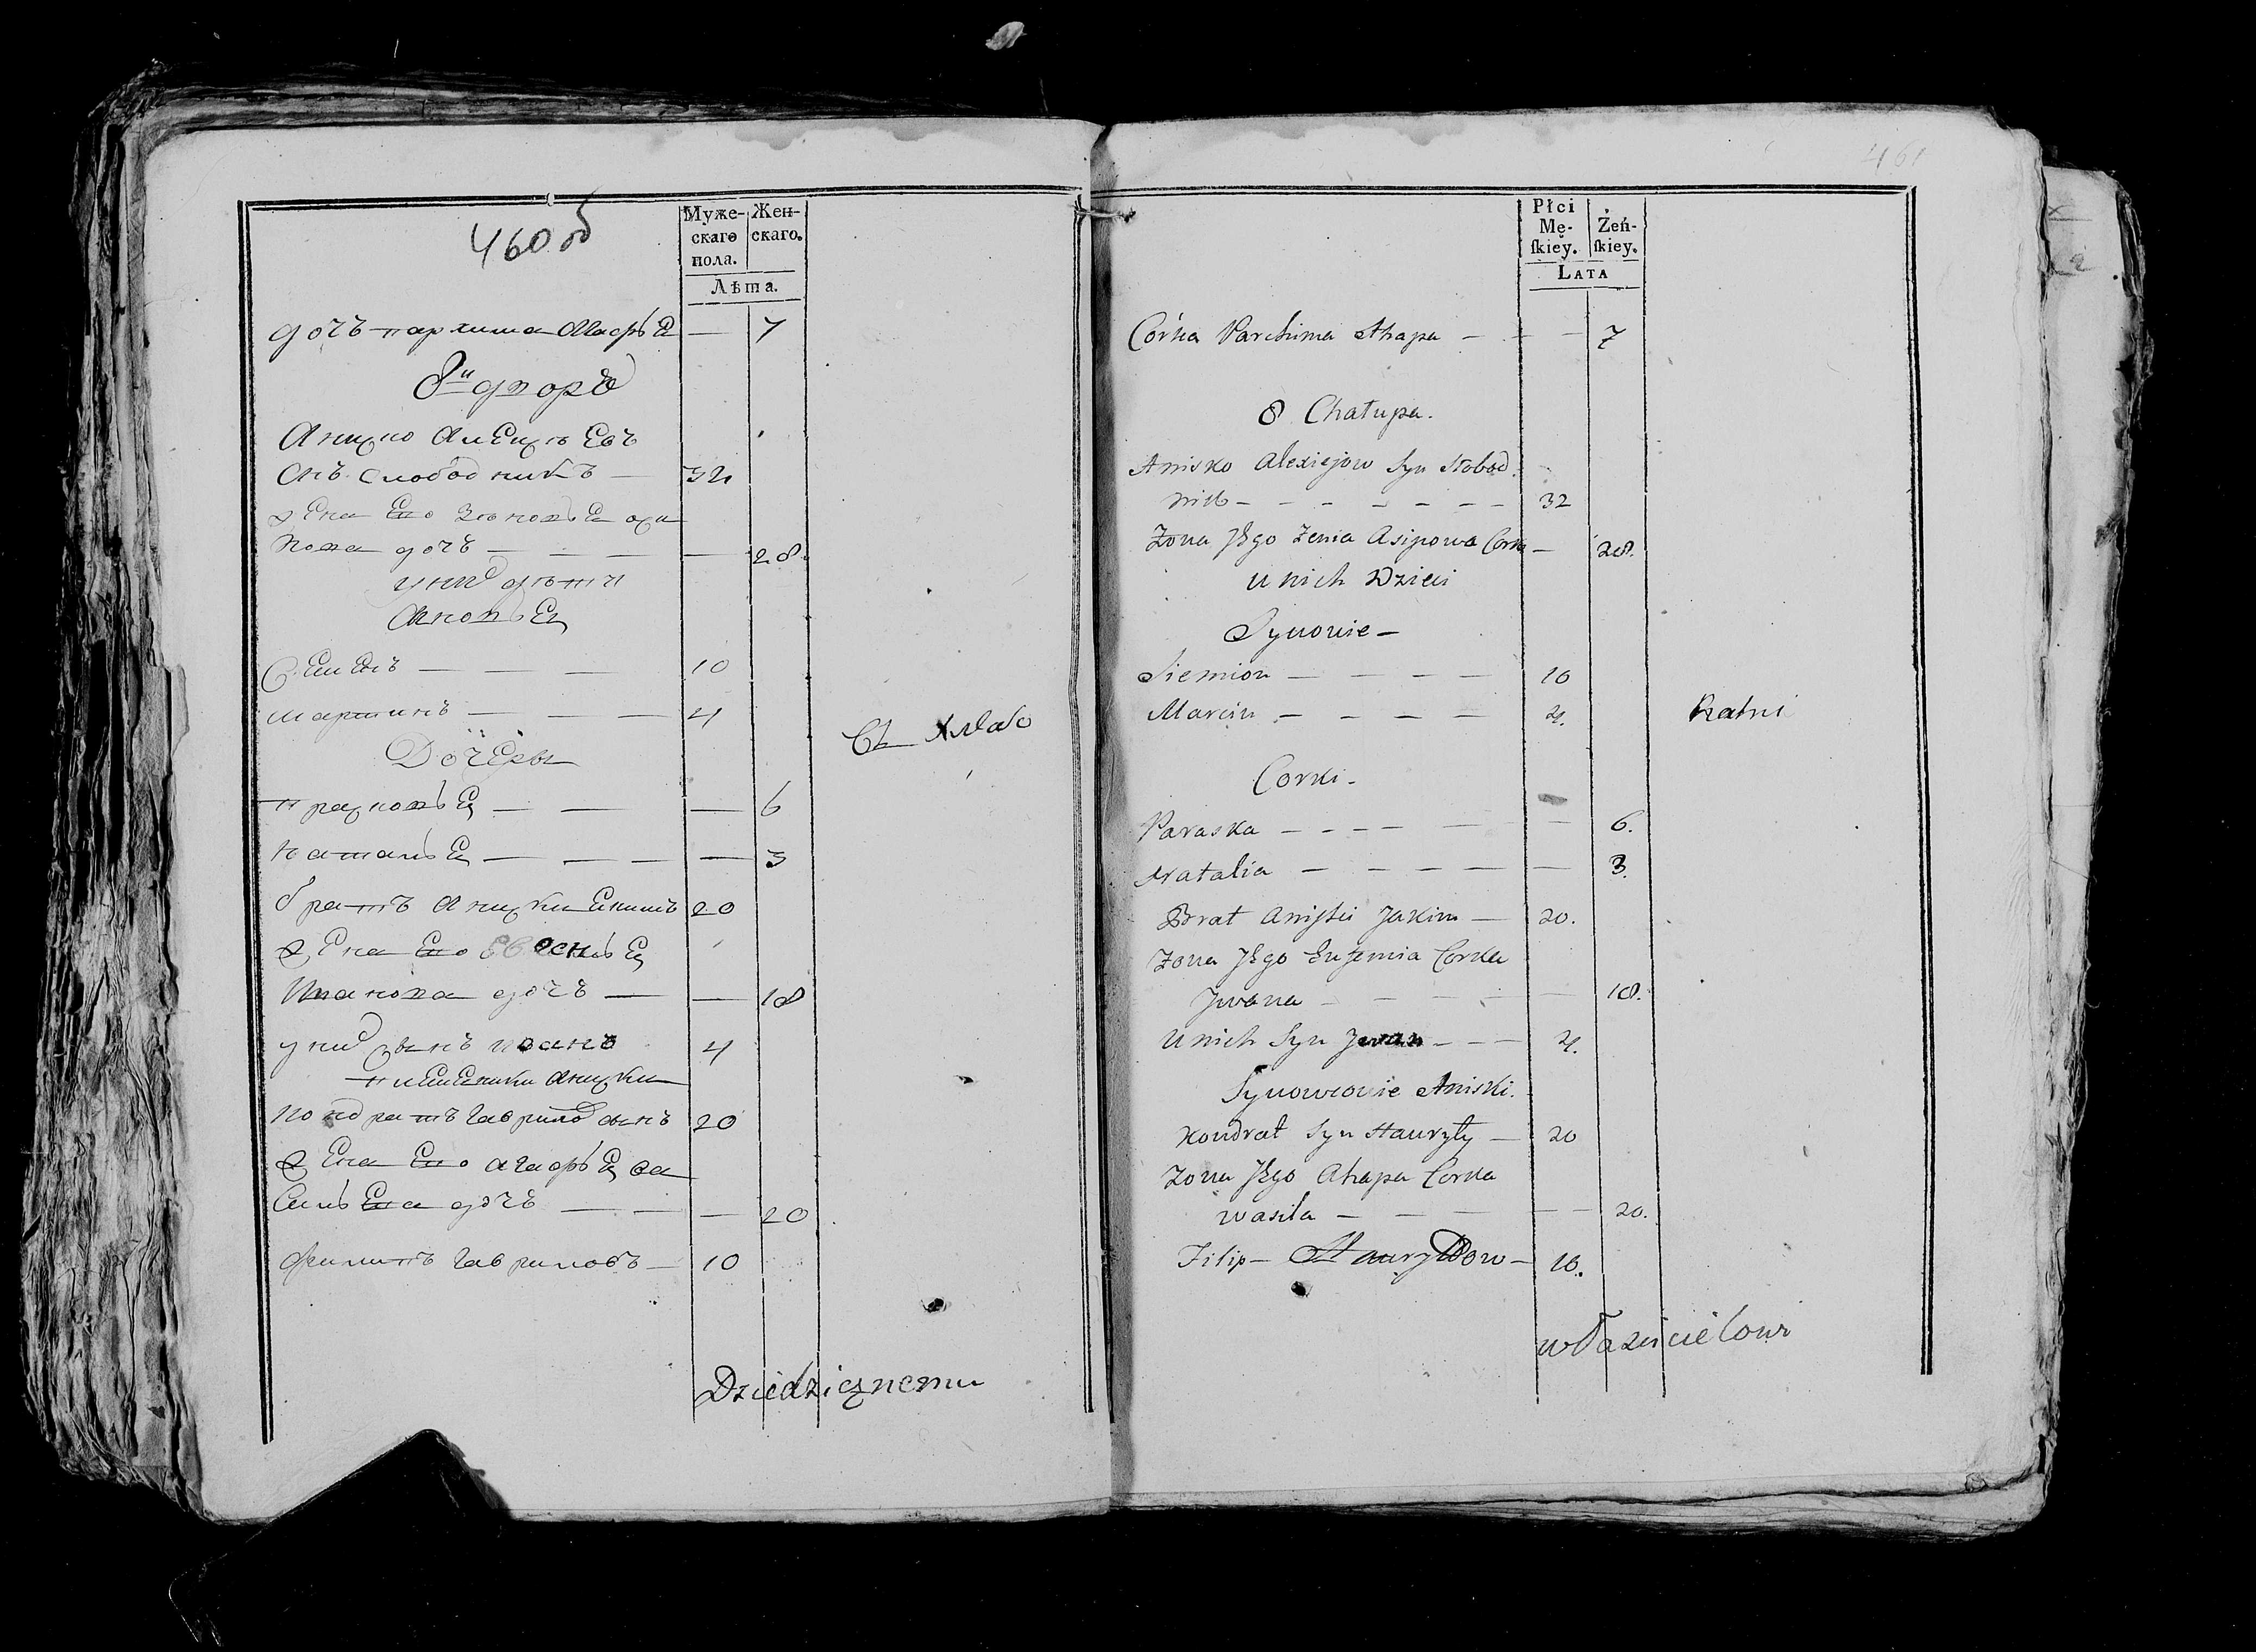 460 об
Муже-
скаго
пола.
Жен-
скаго.
Лѣта.
дочь пархима — 7
8й дворъ
Аниско Алексѣевъ
снъ слободникъ — 32
жена Его
пова дочь — — — — 28.
у них дѣти
Сыновьея
Семенъ — — — 10
мартинъ — — — 4
Дочеры
прасковьея — — — 6
натальея — — — — 3
братъ аниски Екимъ 20
жена Его
Иванова дочъ — — 18
у них сынъ иванъ 4
племеники аниски
кондратъ гаврилов сынъ 20
жена Его агафьея ва
сильева дочъ — — — 20
филипъ гавриловъ — 10
Dziedzicznemu
461
Płci
Mę-
ſkiey.
Żeń-
ſkiey.
LATA
Córka Parchima Ahapa — — — 7
8 Chałupa.
Anisko Alexiejow Syn Słobod.
nik — — — — — — 32
Żona Jego Zenia Asipowa Cork — 28.
U nich Dzieci
Synowie —
Siemion — — — — 10
Marcin — — — — 4.
Corki —
Paraska — — — — — — 6.
Natalia — — — — — 3.
Brat Aniſki Jakim — 20.
Żona Jego Eufemia Corka
Jwana — — — — — 18.
U nich Syn Jwan — — — 4.
Synowcowie Aniski.
Kondrat Syn Hauryły — 20
Żona Jego Ahapa Corka
Wasila — — — — — 20.
Filip — Hauryłow — 10.
Właścicielowi